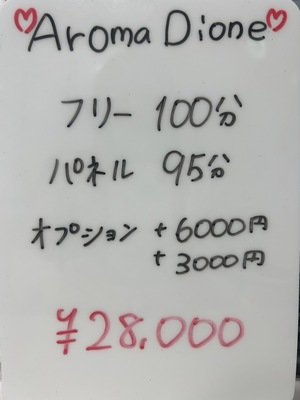 ♡Aroma Dione♡
フリー 100分
パネル 95分
オプション +6000円
+3000円
¥28.000